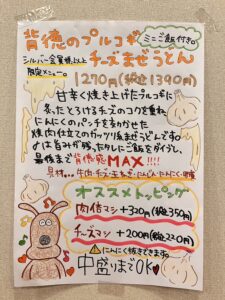 背徳のプルコギ
ミニご飯付き。
チーズまぜうどん
シルバー会員様以上
限定メニュー。
1270円(税込1390円)
甘辛く焼き上げたプルコギに
炙ったとろけるチーズのコクを重ね、
にんにくのパンチをきかせた
焼肉仕立てのガッツリ系まぜうどんです。
〆は旨みが残ったタレにご飯をダイブし、
最後まで背徳感MAX!!!!
具材…牛肉・チーズ・玉ねぎ・にんじん・にんにく・胡麻
オススメトッピング
肉倍マシ +320円(税込350円)
チーズマシ +200円(税込220円)
にんにく抜きできます。
中盛りまでOK